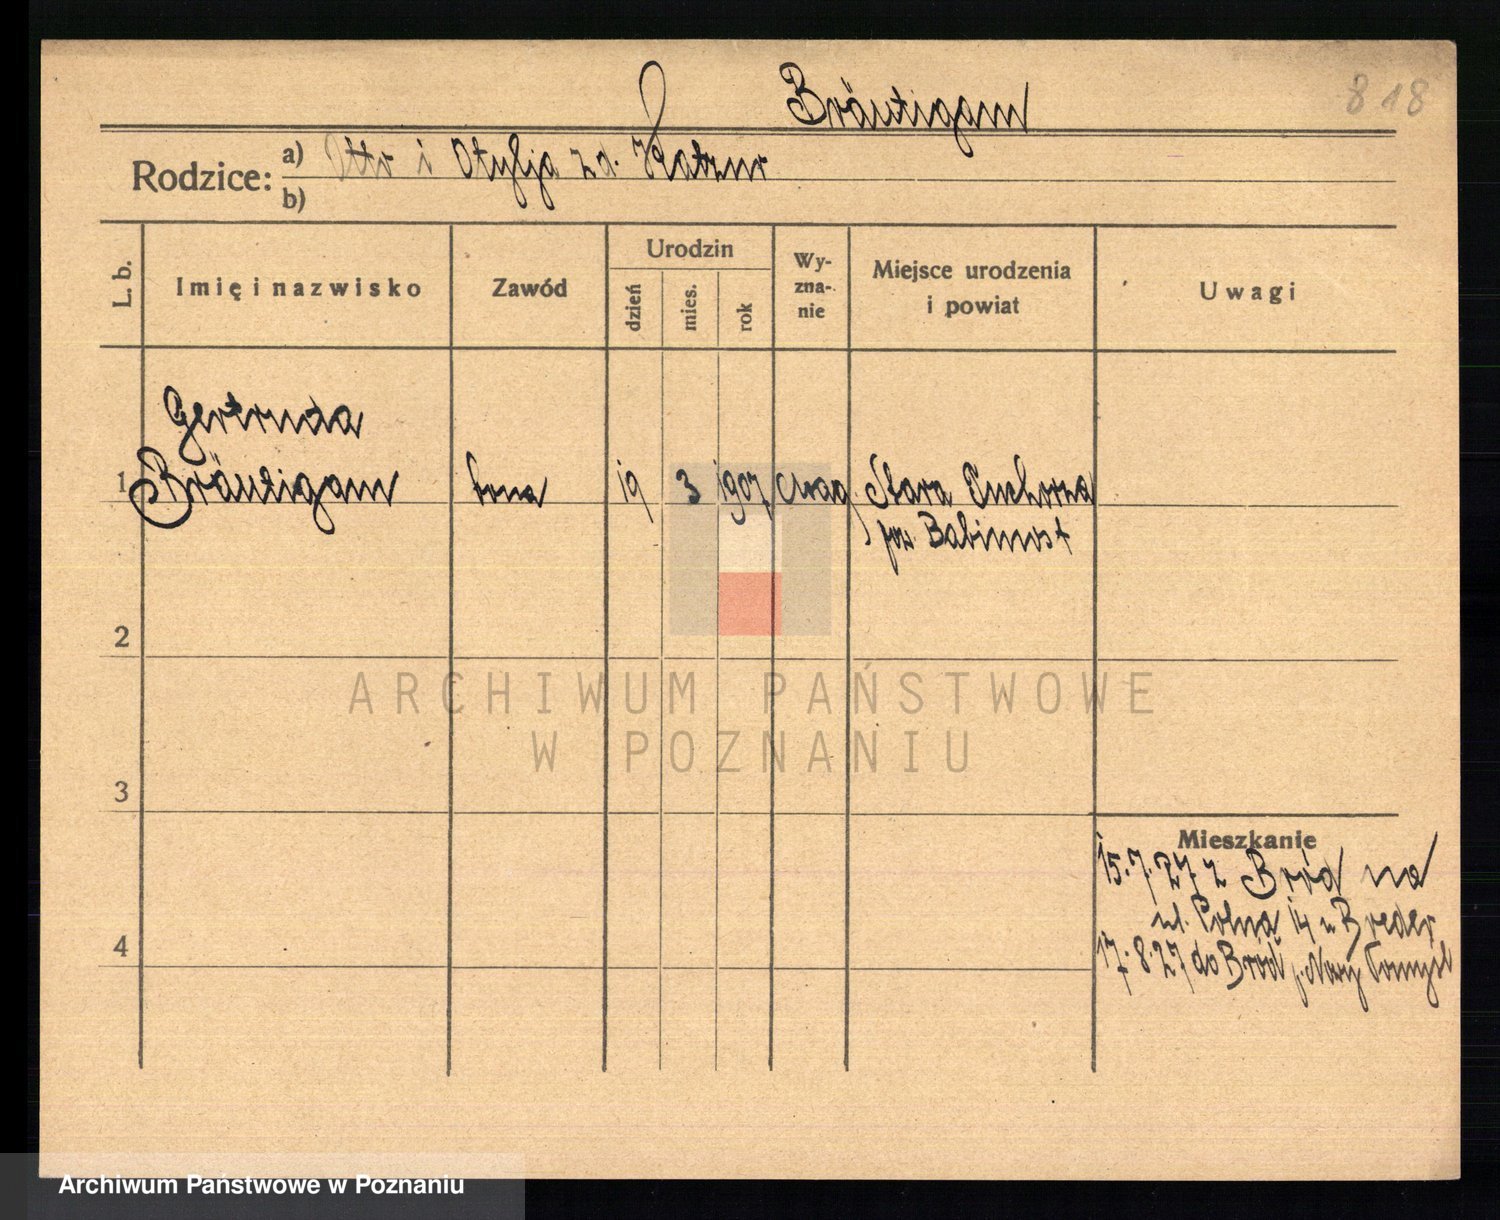 Bräutigam
818
Rodzice: a) Otto i Otylja zd. Katzur
b)
L. b. Imię i nazwisko Zawód Urodzin dzień mies. rok Wy-zna-nie Miejsce urodzenia i powiat Uwagi
Gertruda
1 Bräutigam 19 3 1907 Stara Tuchorza
pow. Babimost
2
3
4
Mieszkanie
15.7.27 z Bród na
ul. Polną 14 u Breder
17.8.27 do Bród p. Nowy Tomyśl
ARCHIWUM PAŃSTWOWE
W POZNANIU
Archiwum Państwowe w Poznaniu